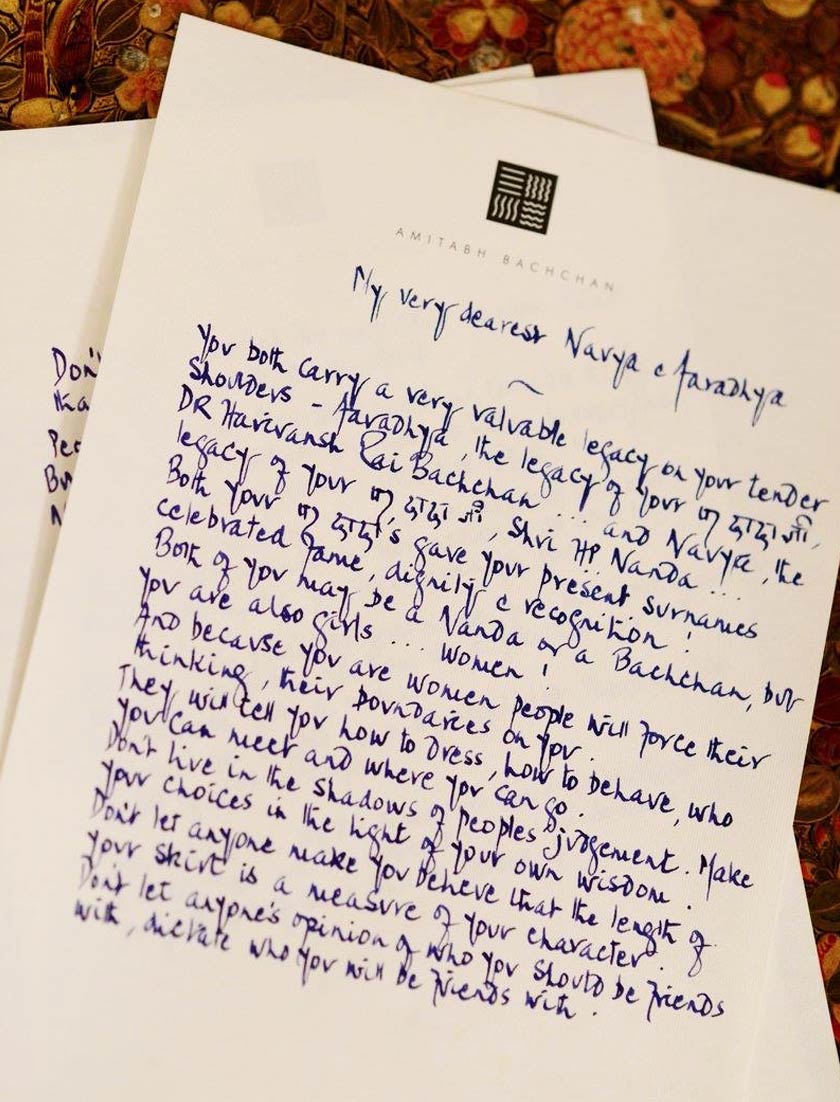 AMITABH BACHCHAN
My very dearest Navya & Aaradhya
You both carry a very valuable legacy on your tender
shoulders - Aaradhya, the legacy of your पर दादा जी,
DR Harivansh Rai Bachchan ... and Navya, the
legacy of your पर दादा जी, Shri HP Nanda ...
Both your पर दादा's gave your present surnames
celebrated fame, dignity & recognition !
Both of you may be a Nanda or a Bachchan, but
you are also girls ... women !
And because you are women people will force their
thinking, their boundaries on you.
They will tell you how to dress, how to behave, who
you can meet and where you can go.
Don't live in the shadows of peoples judgement. Make
your choices in the light of your own wisdom.
Don't let anyone make you believe that the length of
your skirt is a measure of your character.
Don't let anyone's opinion of who you should be friends
with, dictate who you will be friends with.